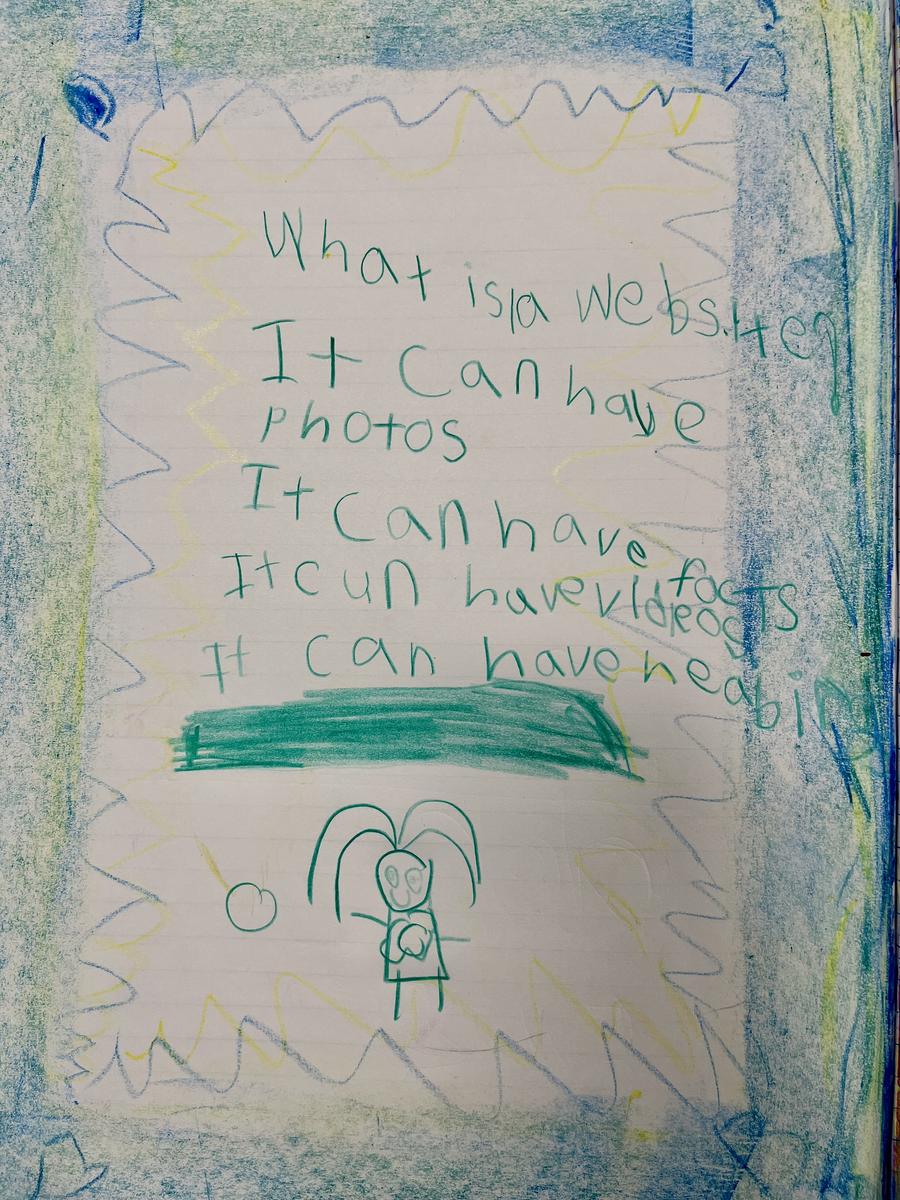 What is a website?
It can have
photos
It can have facts
It cun have videos
It can have heabin